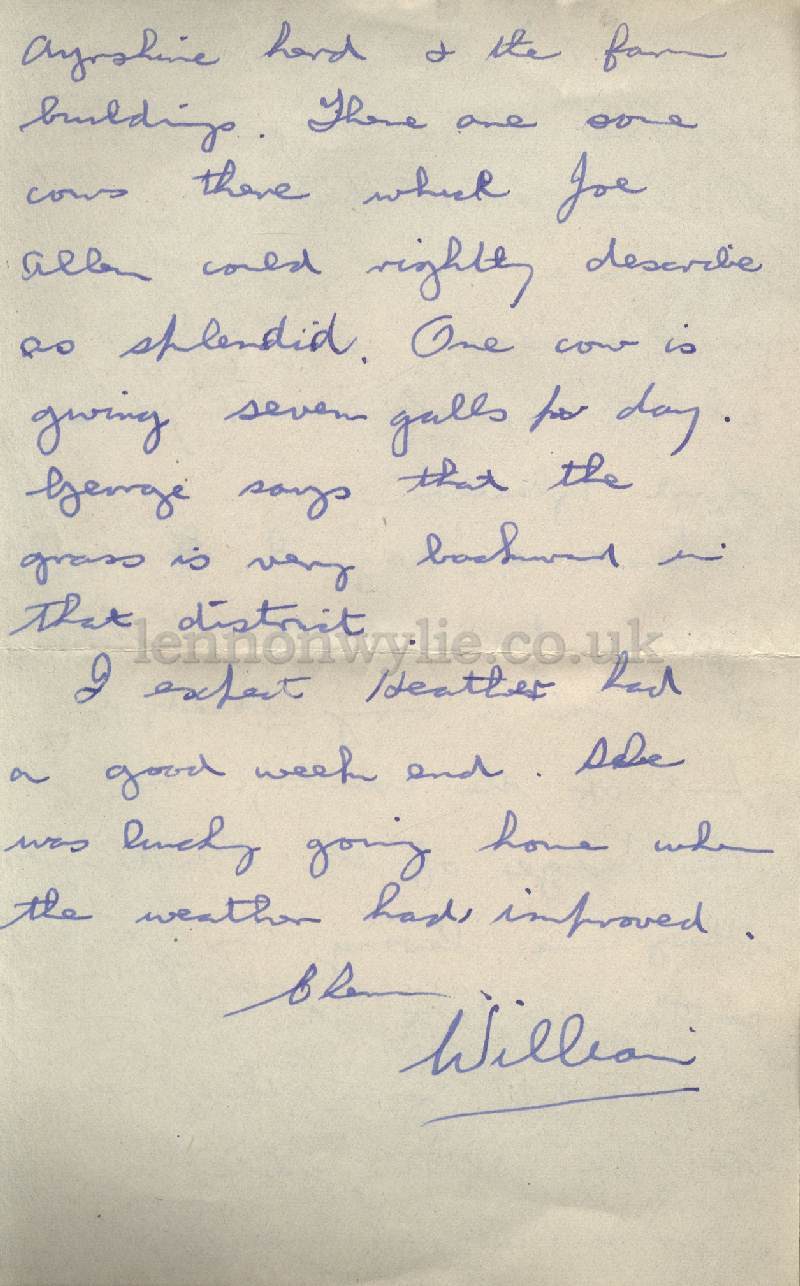 Ayrshire herd & the farm
buildings. There are some
cows there which Joe
Allen could rightly describe
as splendid. One cow is
giving seven galls per day.
George says that the
grass is very backward in
that district.
lennonwylie.co.uk
I expect Heather had
a good week end. She
was lucky going home when
the weather had improved.
William